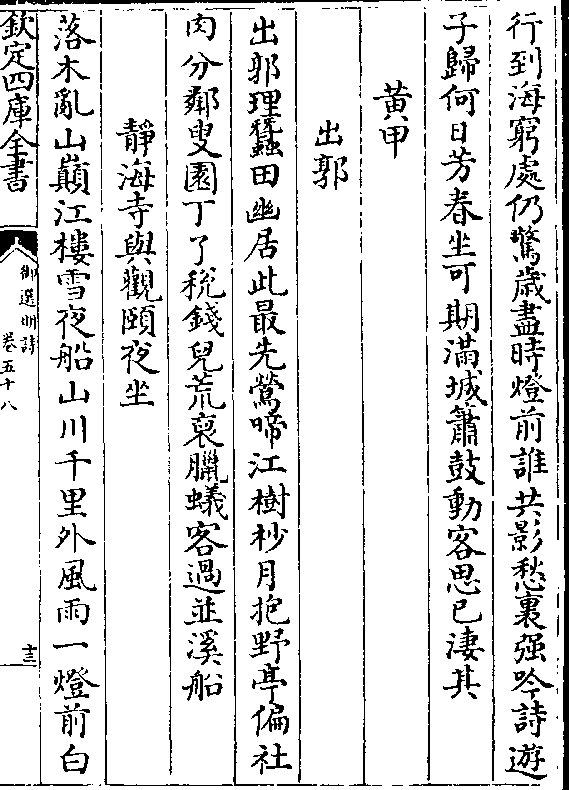 行到海窮處仍驚歲盡時燈前誰共影愁裏强吟詩遊
子歸何日芳春坐可期滿城簫鼓動客思已淒其
黄甲
出郭
出郭理蠶田幽居此最先鶯啼江樹杪月抱野亭偏社
肉分鄰叟園丁了稅錢兒荒裒臘蟻客過並溪船
靜海寺與觀頤夜坐
落木亂山巔江樓雪夜船山川千里外風雨一燈前白
欽定四庫全書
御選明詩
卷五十八
十三